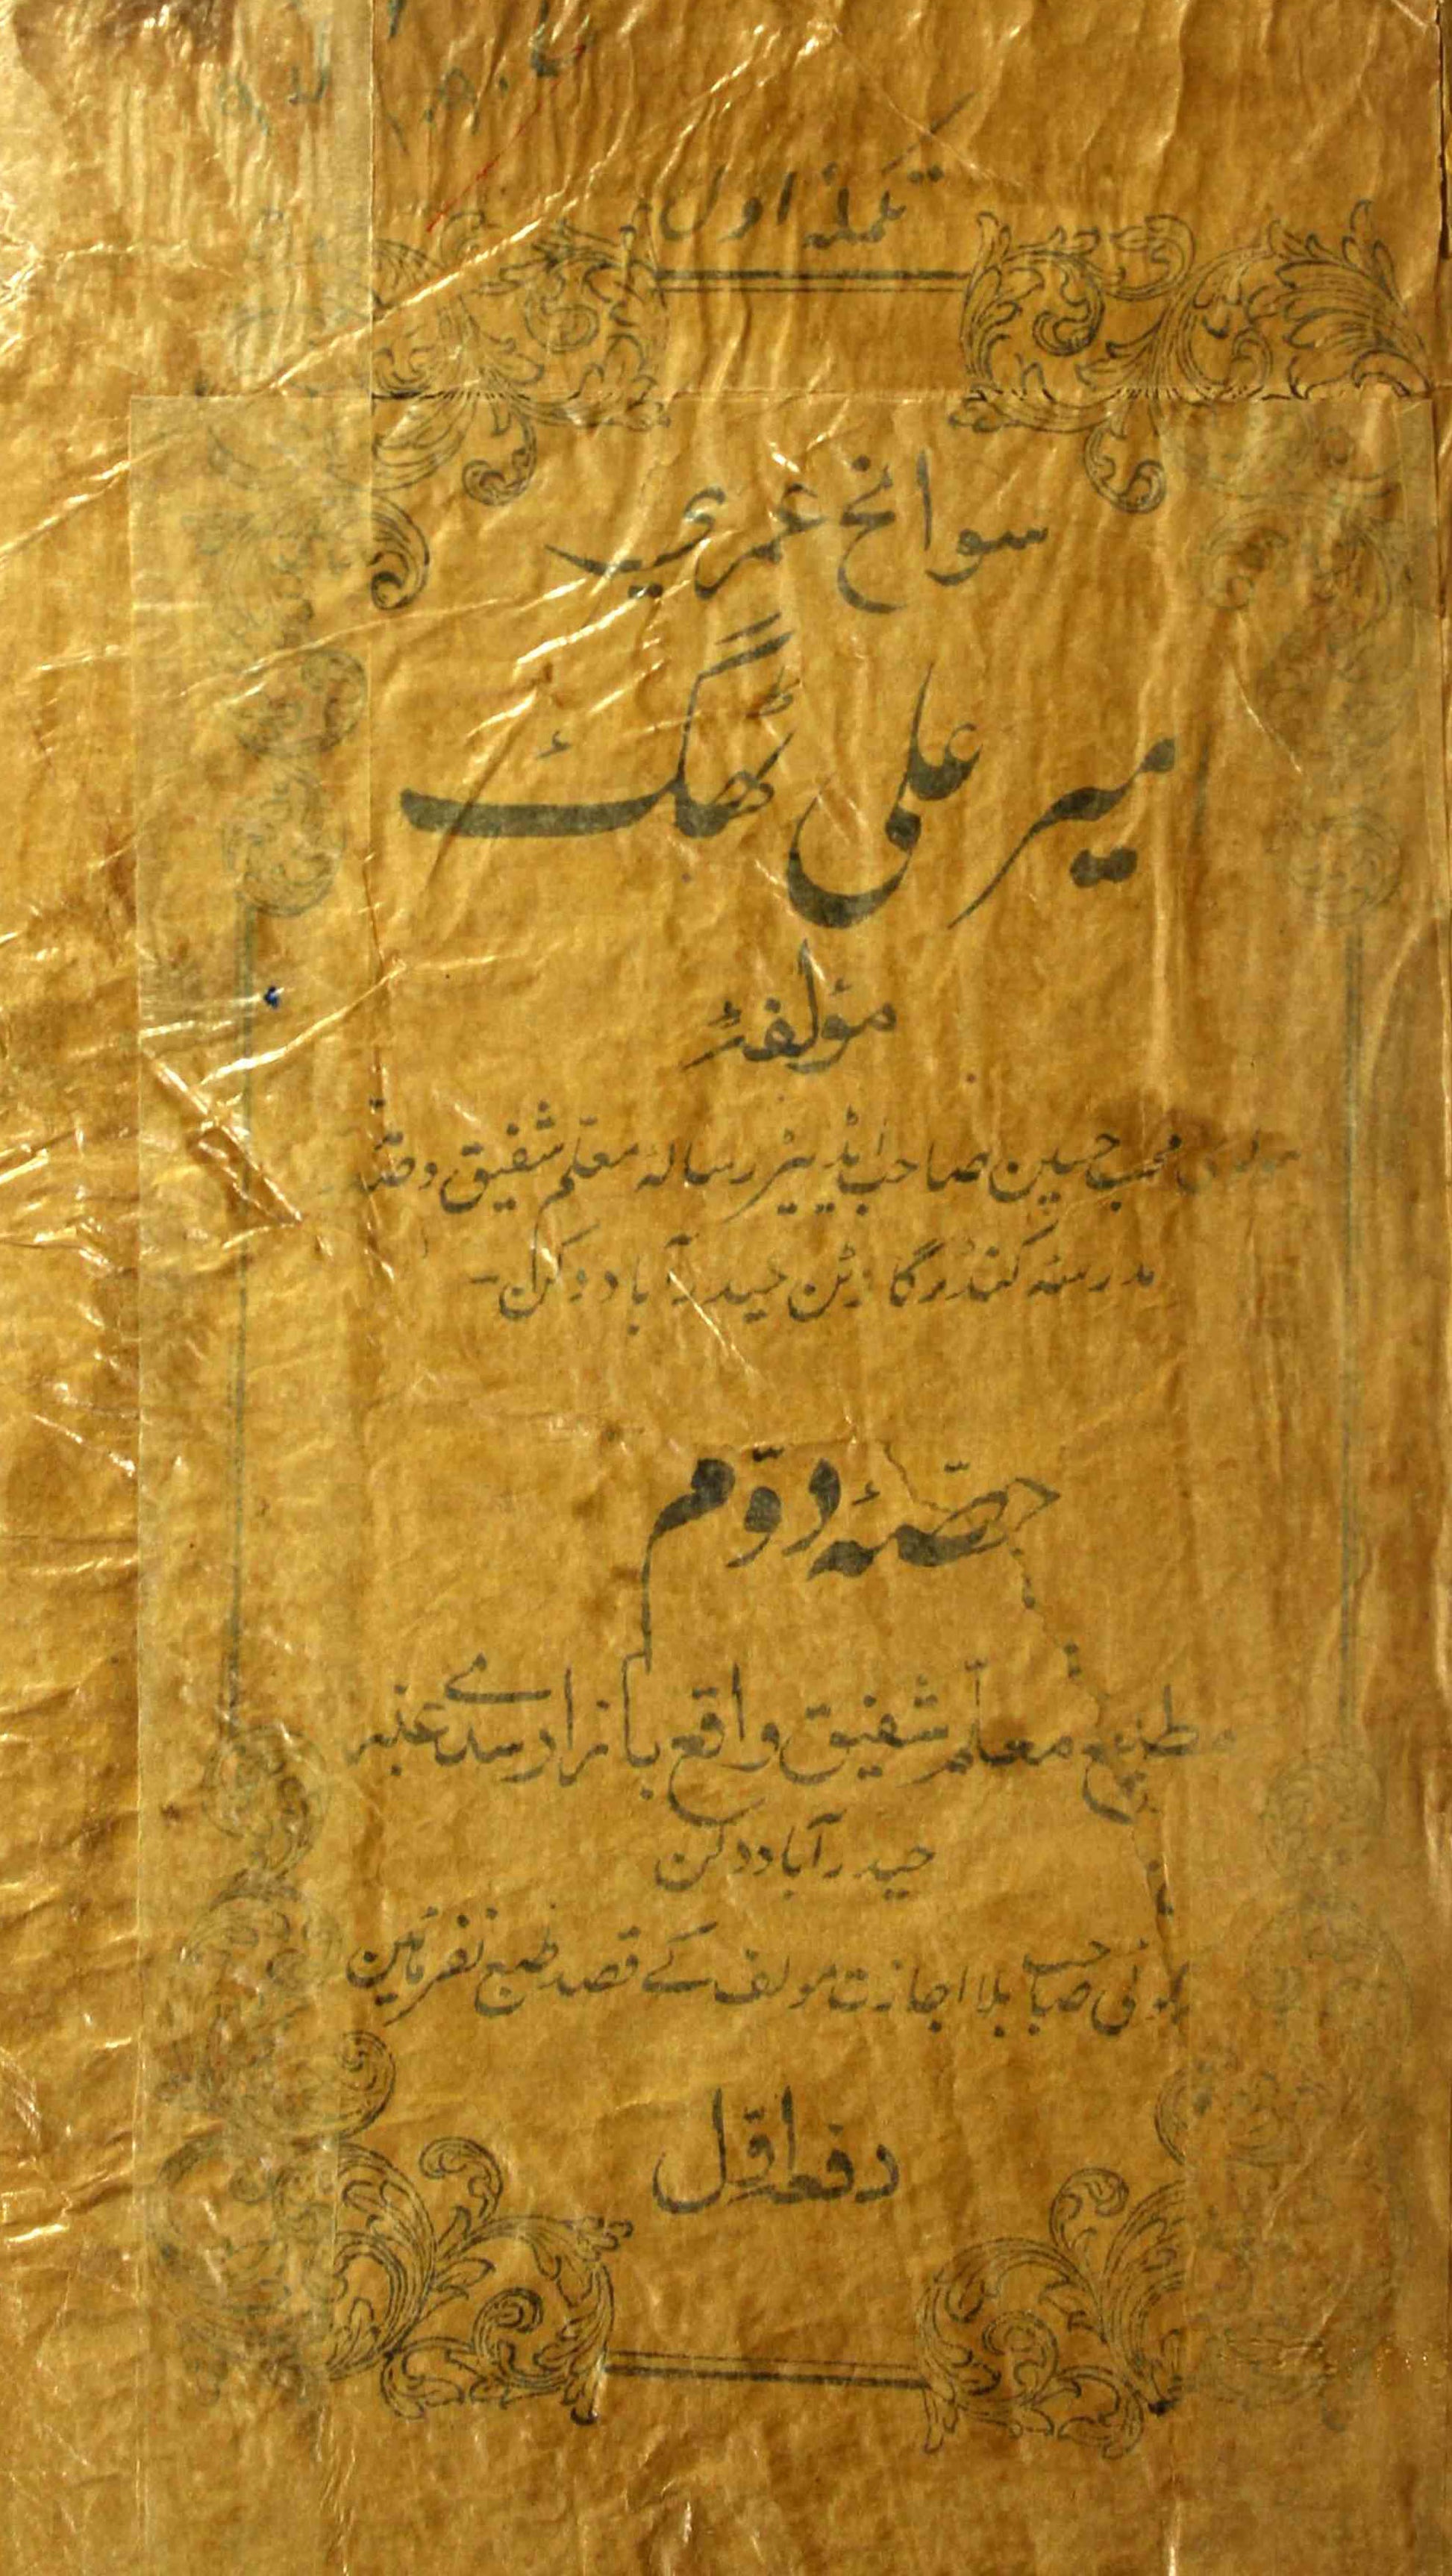 تکملۂ اول
سوانح عمری
میر علی ٹھگ
مؤلفۂ
محب حسین صاحب اڈیٹر رسالۂ معلّم شفیق و
مدرسۂ کنڈرگارٹن حیدرآباد دکن -
حصّۂ دوّم
مطبع معلّم شفیق واقع بازار سدے عنبر
حیدرآباد دکن
کوئی صاحب بلا اجازت مولف کے قصد طبع نفرمائین
دفعہ اوّل